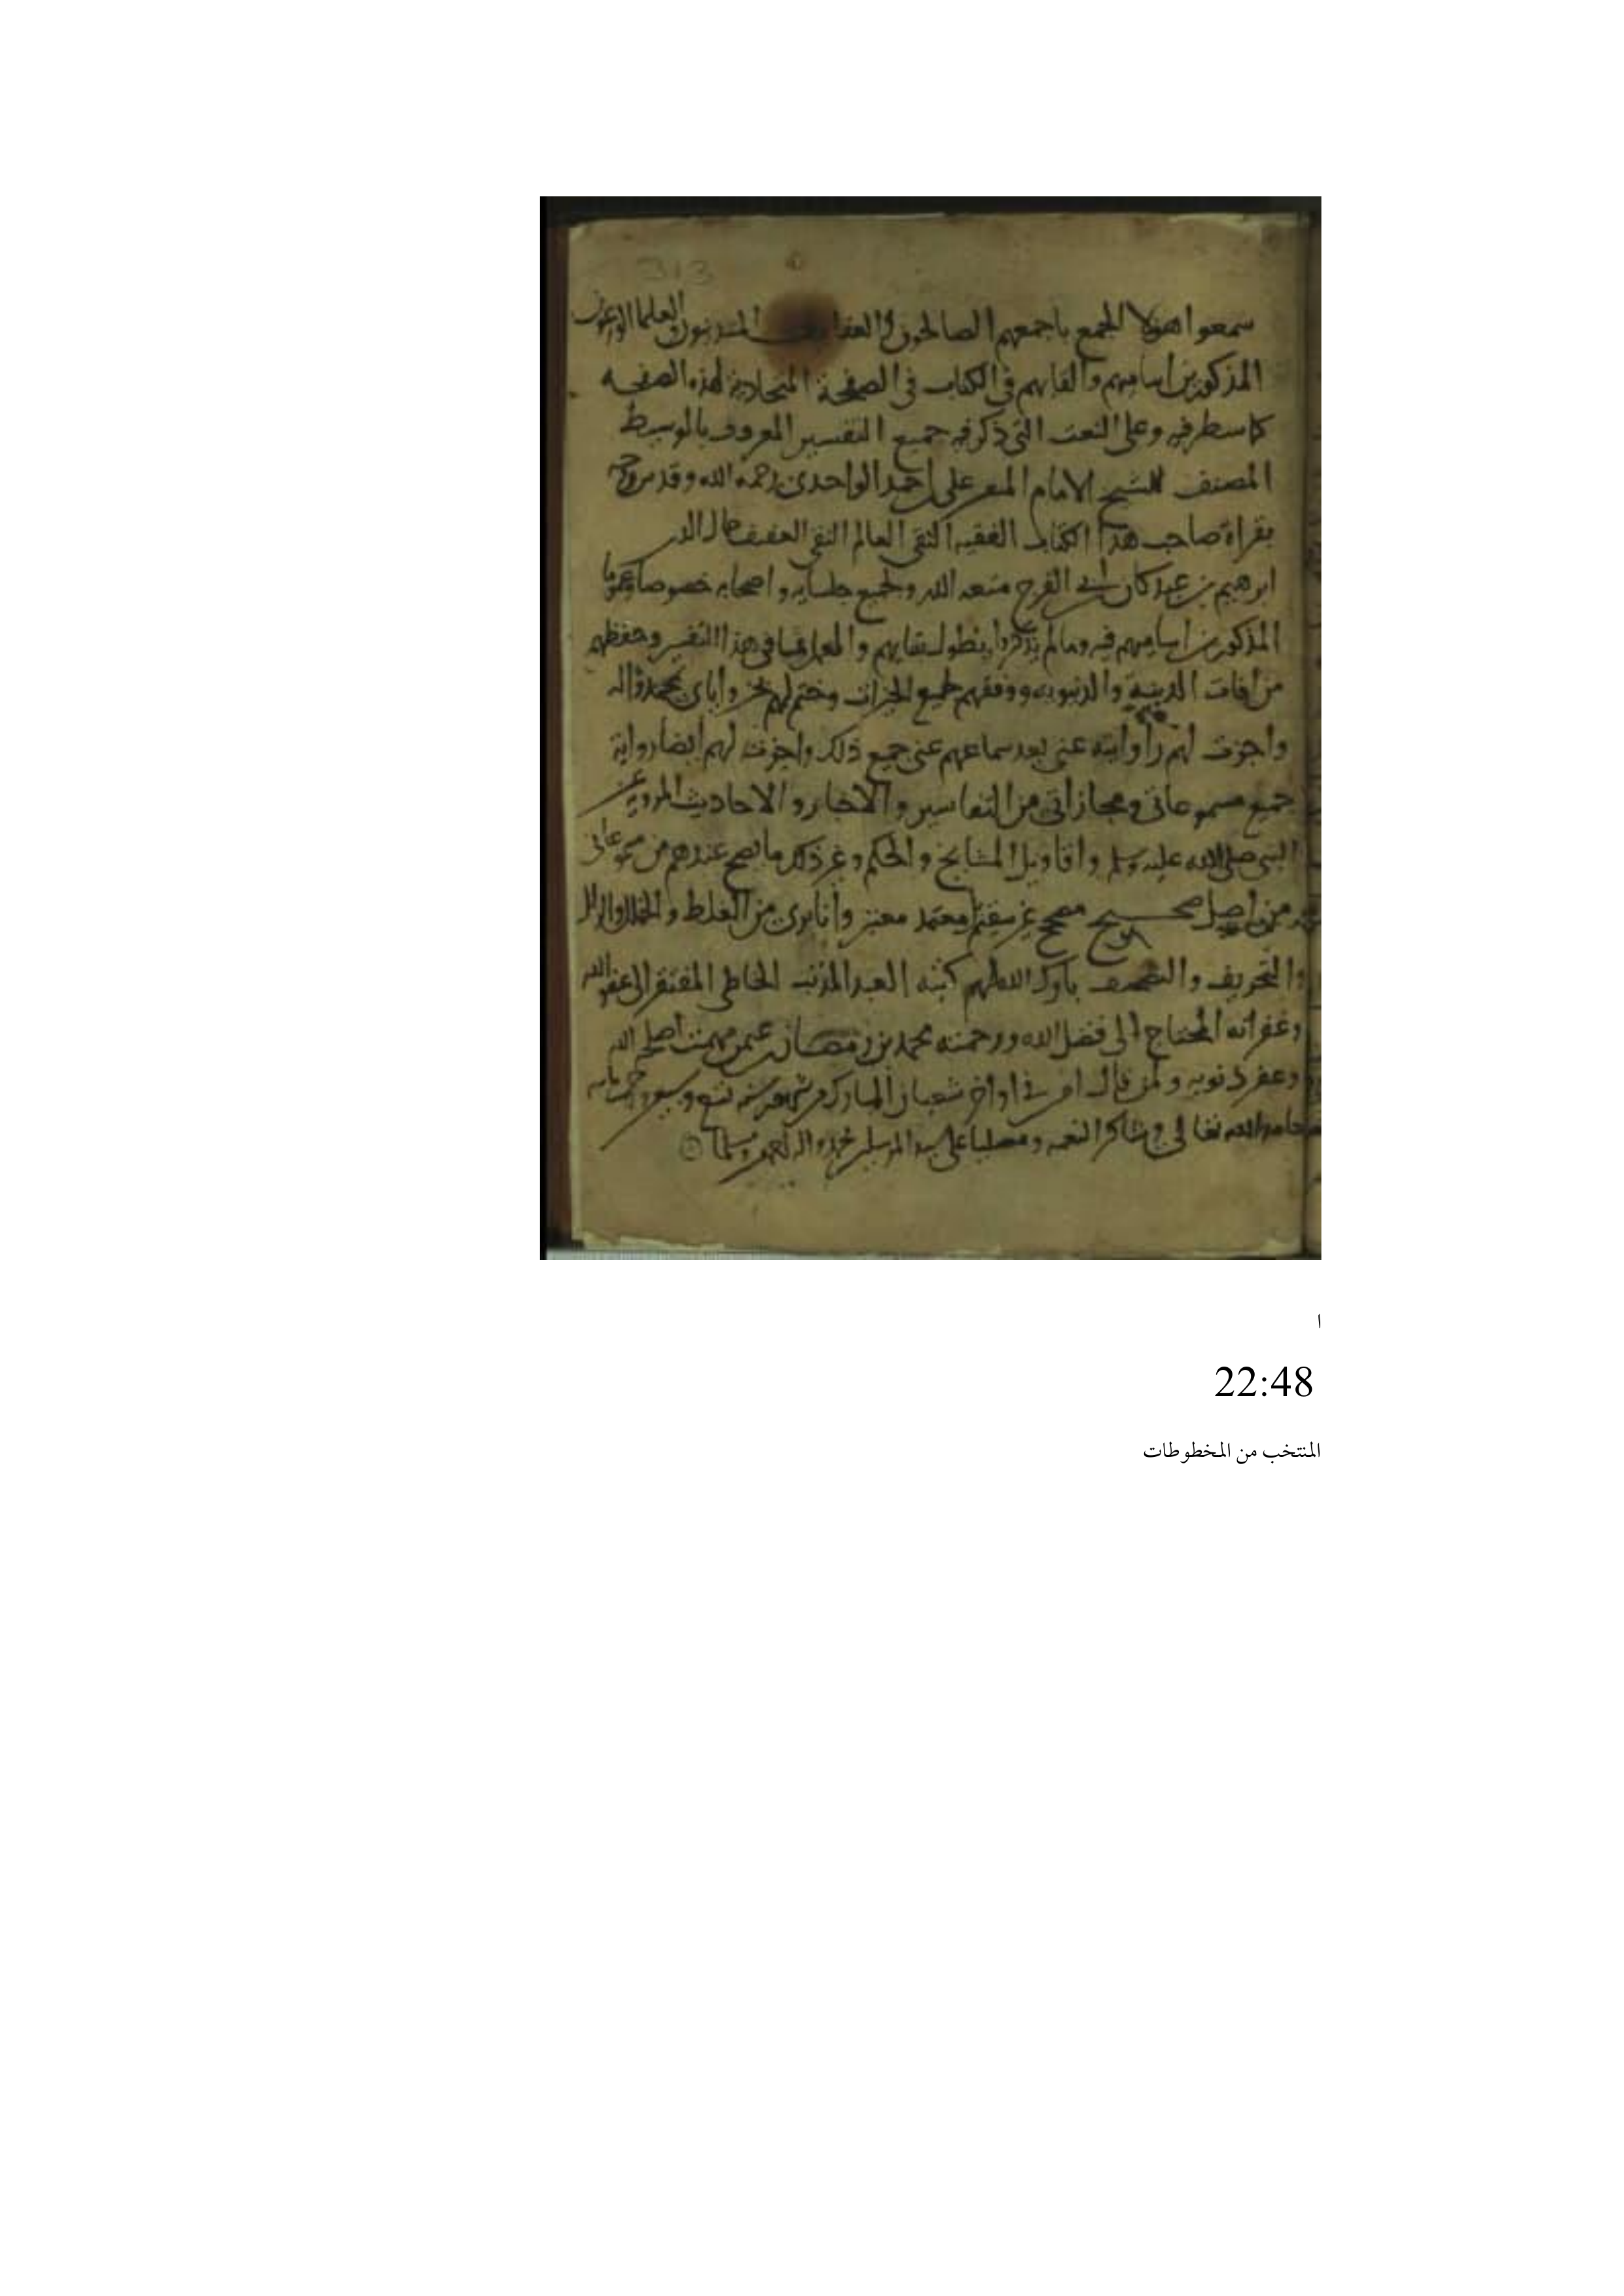 313
سمعوا هولا الجمع باجمعهم الصالحون المتدينون والعلما
المذكورين اساميهم والقابهم في الكتاب في الصفحة المتحاذية لهذه الصفحه
كما سطر فيه وعلى النعت التي ذكر فيه جميع التفسير المعروف بالوسيط
المصنف للشيخ الامام المفسر على احمد الواحدى رحمه الله وقدس روحه
بقراة صاحب هذا الكتاب الفقيه التقى العالم النقى العفيف
ابرهيم بن ابي الفرج متعه الله ولجميع جلسايه واصحابه خصوصا وعموما
المذكورين اساميهم فيه ومالم يذكروا بطول بقايهم والعمل بما في هذا التفسير وحفظهم
من افات الدينية والدنيويه ووفقهم لجميع الخيرات وختم لهم بخير واياى بمحمد واله
واجزت لهم رواية عنى بعد سماعهم عنى جميع ذلك واجزت لهم ايضا رواية
جميع مسموعاتى ومجازاتى من التفاسير والاخبار والاحاديث المروية عن
النبى صلى الله عليه وسلم واقاويل المشايخ والحكم وغير ذلك ما يصح عندهم من
من اصل صحيح مصحح غير سقيم معتمد معتبر وأنا برى من الغلط والخلل والزلل
والتحريف والتصحيف بارك الله لهم كتبه العبد المذنب الخاطى المفتقر الى عفو الله
وغفرانه المحتاج الى فضل الله ورحمته محمد بن رمضان بن عمر اصلح الله
وغفر ذنوبه ولمن قال امين في اواخر شعبان المبارك من شهور سنه
حامدا لله تعالى وشاكرا لنعمه ومصليا على سيد المرسلين محمد واله اجمعين ومسلما
ا
22:48
المنتخب من المخطوطات